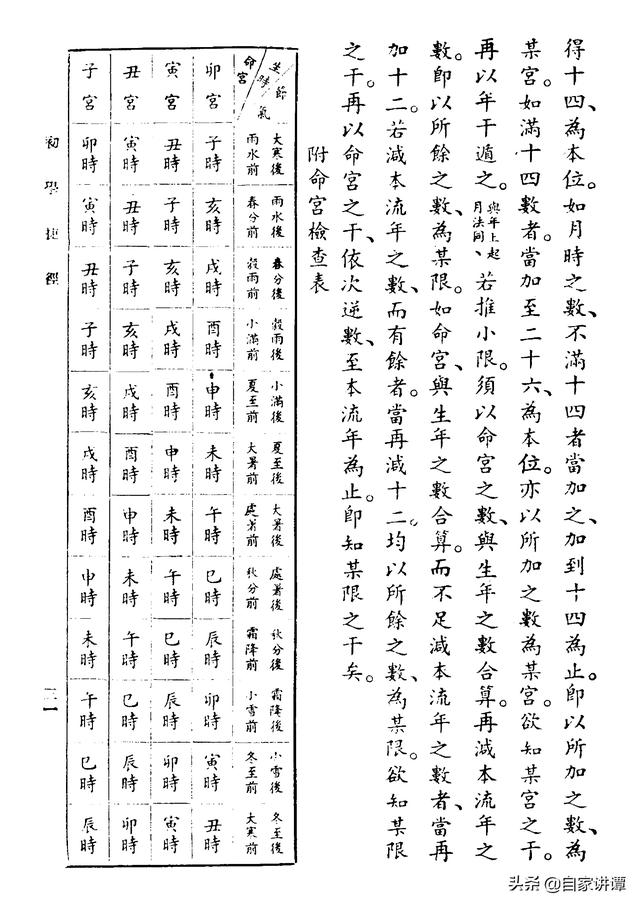 得十四、為本位。如月時之數、不滿十四者當加之、加到十四為止。即以所加之數、為
某宮。如滿十四數者。當加至二十六、為本位。亦以所加之數為某宮。欲知某宮之干。
再以年干遁之。與年上起月法同、若推小限。須以命宮之數、與生年之數合算。再減本流年之
數。即以所餘之數、為某限。如命宮、與生年之數合算。而不足減本流年之數者、當再
加十二。若減本流年之數、而有餘者。當再減十二。均以所餘之數、為某限。欲知某限
之干。再以命宮之干、依次逆數、至本流年為止。即知某限之干矣。
附命宮檢查表
節氣 生時 命宮
大寒後雨水前 雨水後春分前 春分後穀雨前 穀雨後小滿前 小滿後夏至前 夏至後大暑前 大暑後處暑前 處暑後秋分前 秋分後霜降前 霜降後小雪前 小雪後冬至前 冬至後大寒前
卯宮 子時 亥時 戌時 酉時 申時 未時 午時 巳時 辰時 卯時 寅時 丑時
寅宮 丑時 子時 亥時 戌時 酉時 申時 未時 午時 巳時 辰時 卯時 寅時
丑宮 寅時 丑時 子時 亥時 戌時 酉時 申時 未時 午時 巳時 辰時 卯時
子宮 卯時 寅時 丑時 子時 亥時 戌時 酉時 申時 未時 午時 巳時 辰時
初學捷徑
頭条 @自家讲谭